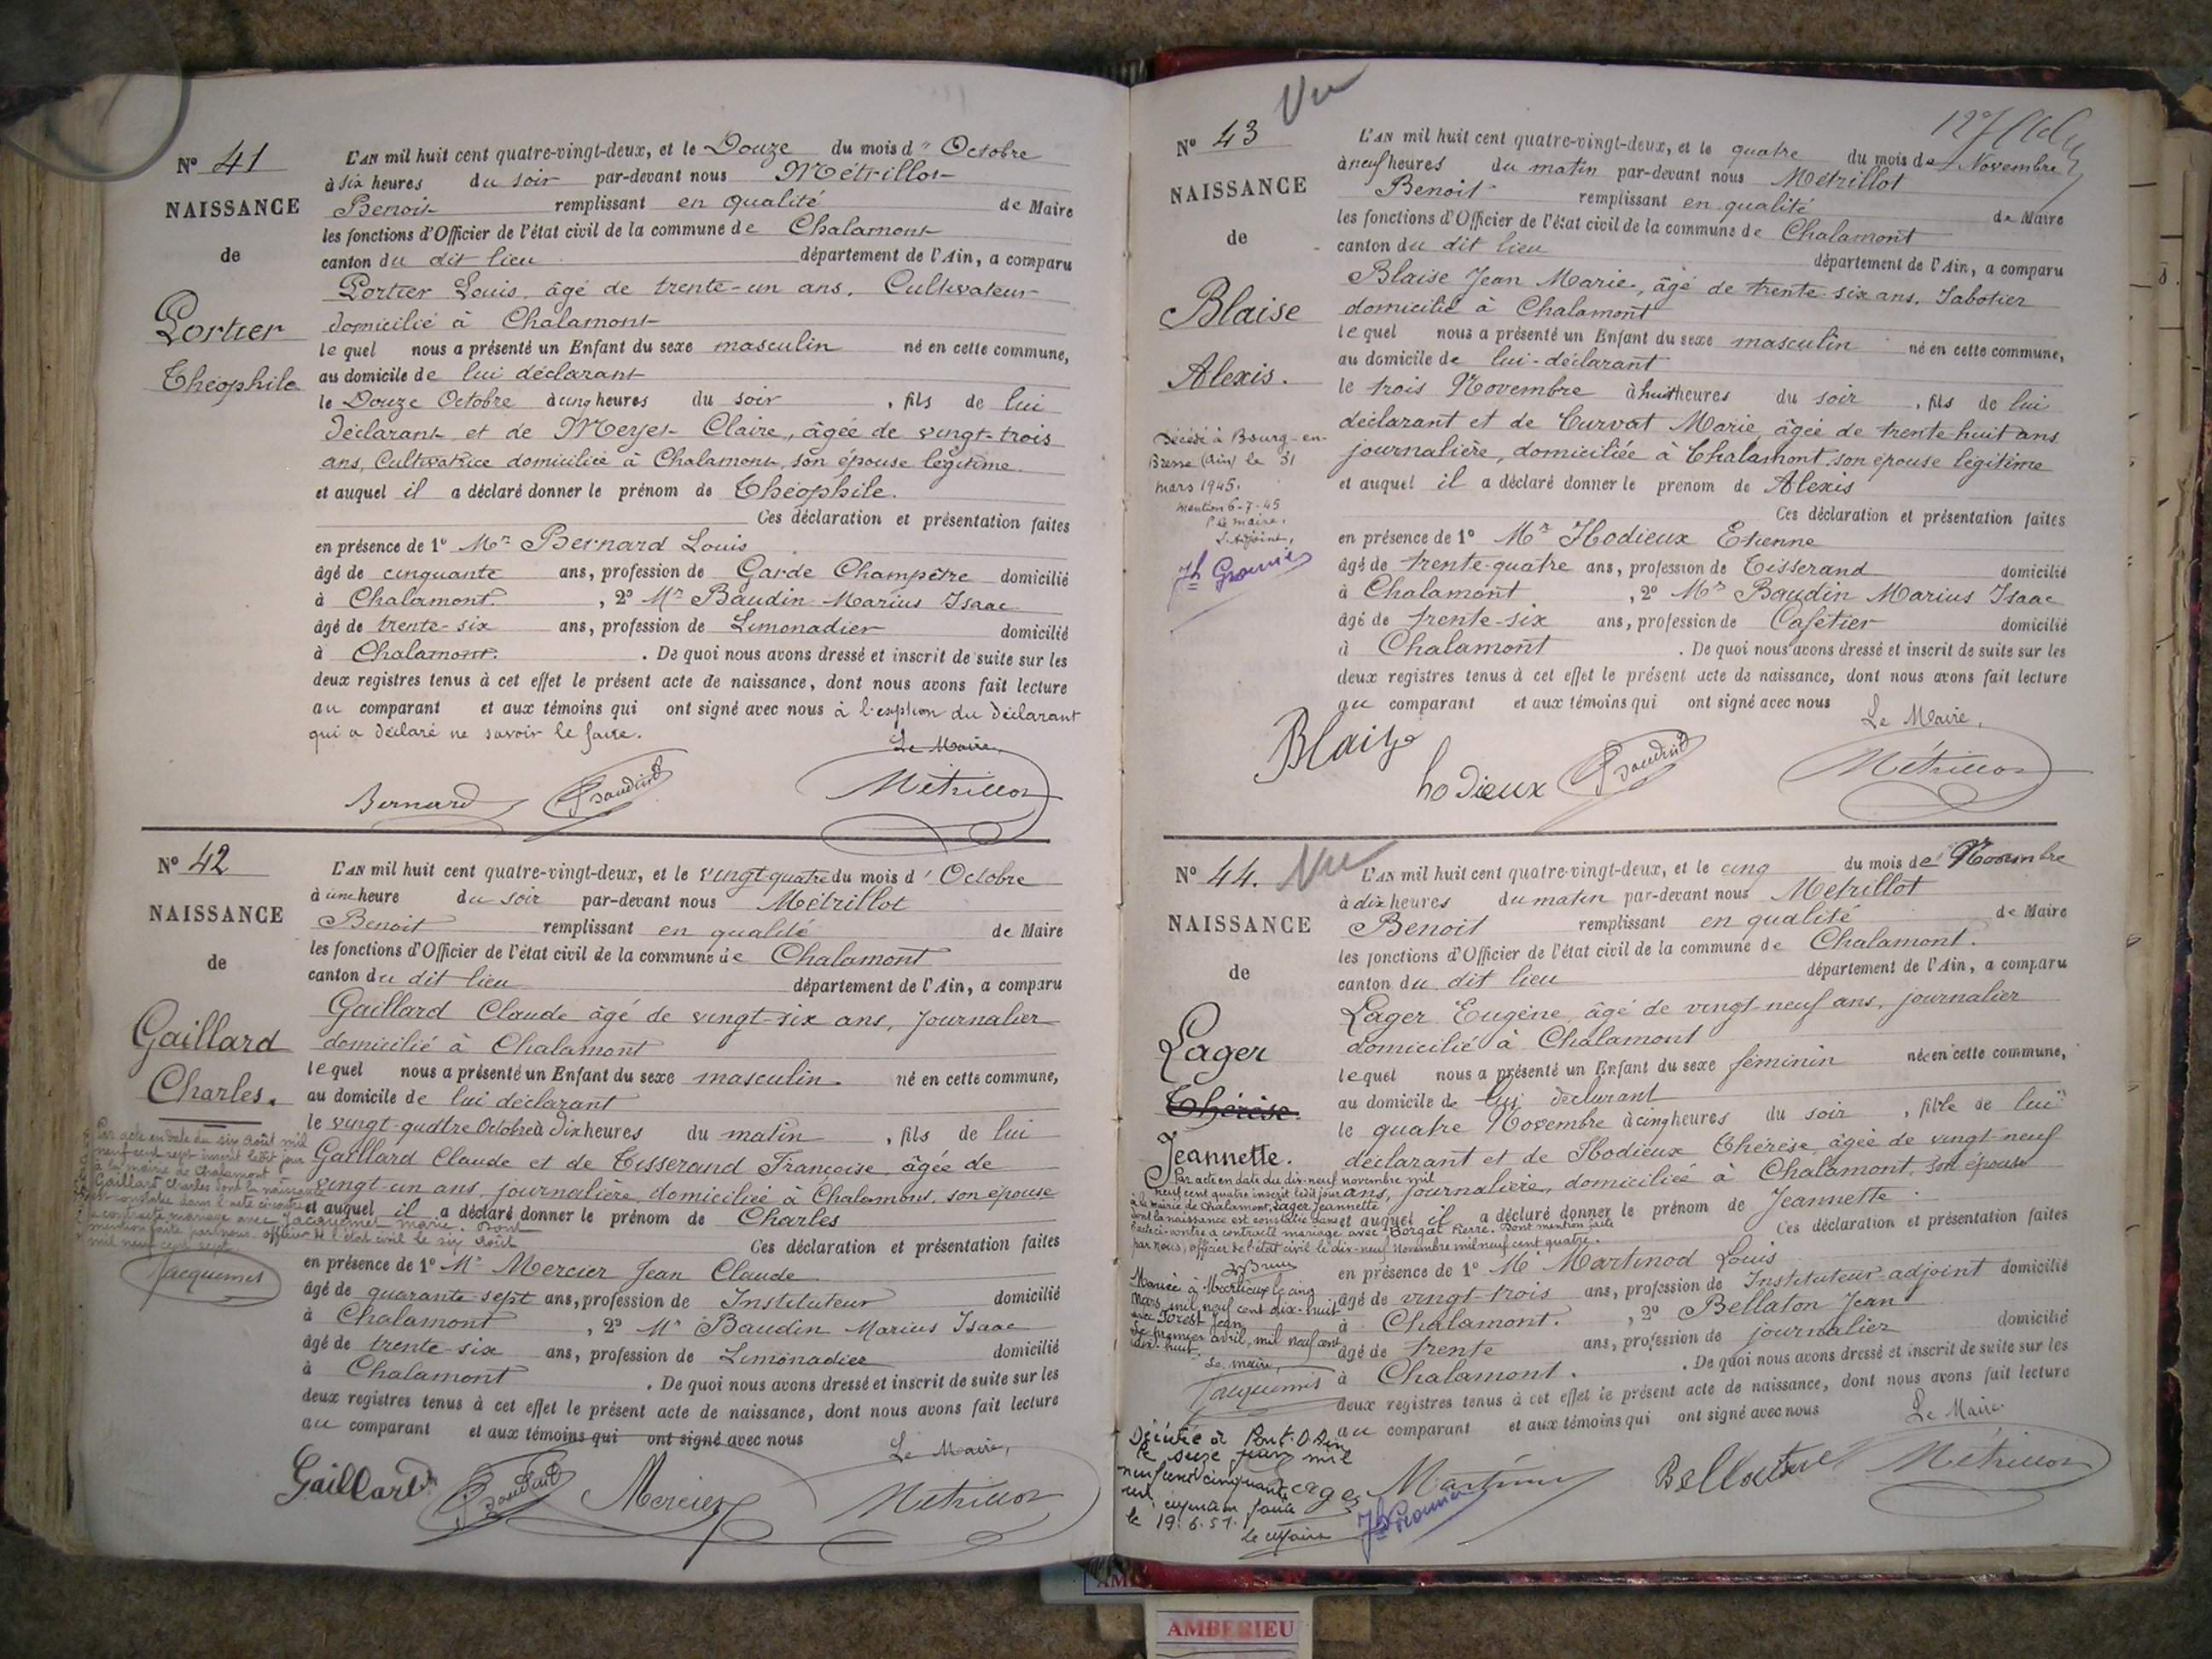 N° 41
NAISSANCE
de
Portier
Théophile
L'AN mil huit cent quatre-vingt-deux, et le Douze du mois d'' Octobre
à six heures du soir par-devant nous Métrillot
Benoit remplissant en qualité de Maire
les fonctions d'Officier de l'état civil de la commune de Chalamont
canton du dit lieu département de l'Ain, a comparu
Portier Louis, âgé de trente-un ans, Cultivateur
domicilié à Chalamont
lequel nous a présenté un Enfant du sexe masculin né en cette commune,
au domicile de lui déclarant
le Douze Octobre à cinq heures du soir, fils de lui
déclarant et de Meyet Claire, âgée de vingt-trois
ans, Cultivatrice domiciliée à Chalamont, son épouse légitime
et auquel il a déclaré donner le prénom de Théophile.
Ces déclaration et présentation faites
en présence de 1° Mr Bernard Louis
âgé de cinquante ans, profession de Garde Champêtre domicilié
à Chalamont, 2° Mr Baudin Marius Isaac
âgé de trente-six ans, profession de Limonadier domicilié
à Chalamont. De quoi nous avons dressé et inscrit de suite sur les
deux registres tenus à cet effet le présent acte de naissance, dont nous avons fait lecture
au comparant et aux témoins qui ont signé avec nous à l'exption du déclarant
qui a déclaré ne savoir le faire.
Le Maire,
Bernard Baudin Métrillot
N° 42
NAISSANCE
de
Gaillard
Charles.
Par acte en date du six août mil
neuf cent sept inscrit ledit jour
à la mairie de Chalamont
Gaillard Charles dont la naissance
est constatée dans l'acte ci-contre
a contracté mariage avec Jacquemet Marie. Dont
mention faite par nous officier de l'état civil le six août
mil neuf cent sept.
Jacquemet
L'AN mil huit cent quatre-vingt-deux, et le vingt quatre du mois d' Octobre
à une heure du soir par-devant nous Métrillot
Benoit remplissant en qualité de Maire
les fonctions d'Officier de l'état civil de la commune de Chalamont
canton du dit lieu département de l'Ain, a comparu
Gaillard Claude âgé de vingt-six ans, Journalier
domicilié à Chalamont
lequel nous a présenté un Enfant du sexe masculin né en cette commune,
au domicile de lui déclarant
le vingt-quatre Octobre à dix heures du matin, fils de lui
Gaillard Claude et de Tisserand Françoise, âgée de
vingt-un ans, journalière, domiciliée à Chalamont, son épouse
et auquel il a déclaré donner le prénom de Charles
Ces déclaration et présentation faites
en présence de 1° Mr Mercier Jean Claude
âgé de quarante-sept ans, profession de Instituteur domicilié
à Chalamont, 2° Mr Baudin Marius Isaac
âgé de trente-six ans, profession de Limonadier domicilié
à Chalamont. De quoi nous avons dressé et inscrit de suite sur les
deux registres tenus à cet effet le présent acte de naissance, dont nous avons fait lecture
au comparant et aux témoins qui ont signé avec nous
Le Maire,
Gaillard Baudin Mercier Métrillot
Vu
N° 43
NAISSANCE
de
Blaise
Alexis.
Décédé à Bourg-en-
Bresse (Ain) le 31
mars 1945.
Mention 6-7-45
P. le maire,
L'Adjoint,
L'AN mil huit cent quatre-vingt-deux, et le quatre du mois de Novembre
à neuf heures du matin par-devant nous Métrillot
Benoit remplissant en qualité de Maire
les fonctions d'Officier de l'état civil de la commune de Chalamont
canton du dit lieu département de l'Ain, a comparu
Blaise Jean Marie, âgé de trente-six ans, Sabotier
domicilié à Chalamont
lequel nous a présenté un Enfant du sexe masculin né en cette commune,
au domicile de lui-déclarant
le trois Novembre à huit heures du soir, fils de lui
déclarant et de Curvat Marie âgée de trente huit ans
journalière, domiciliée à Chalamont son épouse légitime
et auquel il a déclaré donner le prenom de Alexis
Ces déclaration et présentation faites
en présence de 1° Mr Hodieux Etienne
âgé de trente-quatre ans, profession de Tisserand domicilié
à Chalamont, 2° Mr Baudin Marius Isaac
âgé de trente-six ans, profession de Cafetier domicilié
à Chalamont. De quoi nous avons dressé et inscrit de suite sur les
deux registres tenus à cet effet le présent acte de naissance, dont nous avons fait lecture
au comparant et aux témoins qui ont signé avec nous
Le Maire,
Blaize hodieux Baudin Métrillot
N° 44.
Vu
NAISSANCE
de
Lager
Thérèse.
Jeannette.
Par acte en date du dix-neuf novembre mil
neuf cent quatre inscrit ledit jour
à la mairie de Chalamont, Lager Jeannette
dont la naissance est constatée dans
l'acte ci-contre a contracté mariage avec Borgat Pierre. Dont mention faite
par nous, officier de l'état civil le dix-neuf novembre mil neuf cent quatre.
Mariée à Marlieux le cinq
mars mil neuf cent dix-huit
avec Forest Jean
Le premier avril, mil neuf cent
dix-huit
Le maire,
Jacquemet
Décédée à Pont-D'Ain
le seize juin mil
neuf cent cinquante
un, mention faite
le 19.6.51.
Le Maire
L'AN mil huit cent quatre-vingt-deux, et le cinq du mois de Novembre
à dix heures du matin par-devant nous Métrillot
Benoit remplissant en qualité de Maire
les fonctions d'Officier de l'état civil de la commune de Chalamont.
canton du dit lieu département de l'Ain, a comparu
Lager Eugène, âgé de vingt-neuf ans, journalier
domicilié à Chalamont
lequel nous a présenté un Enfant du sexe féminin née en cette commune,
au domicile de lui déclarant
le quatre Novembre à cinq heures du soir, fille de lui
déclarant et de Hodieux Thérèse, âgée de vingt-neuf
ans, journalière, domiciliée à Chalamont, son épouse
et auquel il a déclaré donner le prénom de Jeannette.
Ces déclaration et présentation faites
en présence de 1° Mr Martinod Louis
âgé de vingt-trois ans, profession de Instituteur-adjoint domicilié
à Chalamont, 2° Bellaton Jean
âgé de trente ans, profession de journalier domicilié
à Chalamont. De quoi nous avons dressé et inscrit de suite sur les
deux registres tenus à cet effet le présent acte de naissance, dont nous avons fait lecture
au comparant et aux témoins qui ont signé avec nous
Le Maire
Métrillot
AMBERIEU